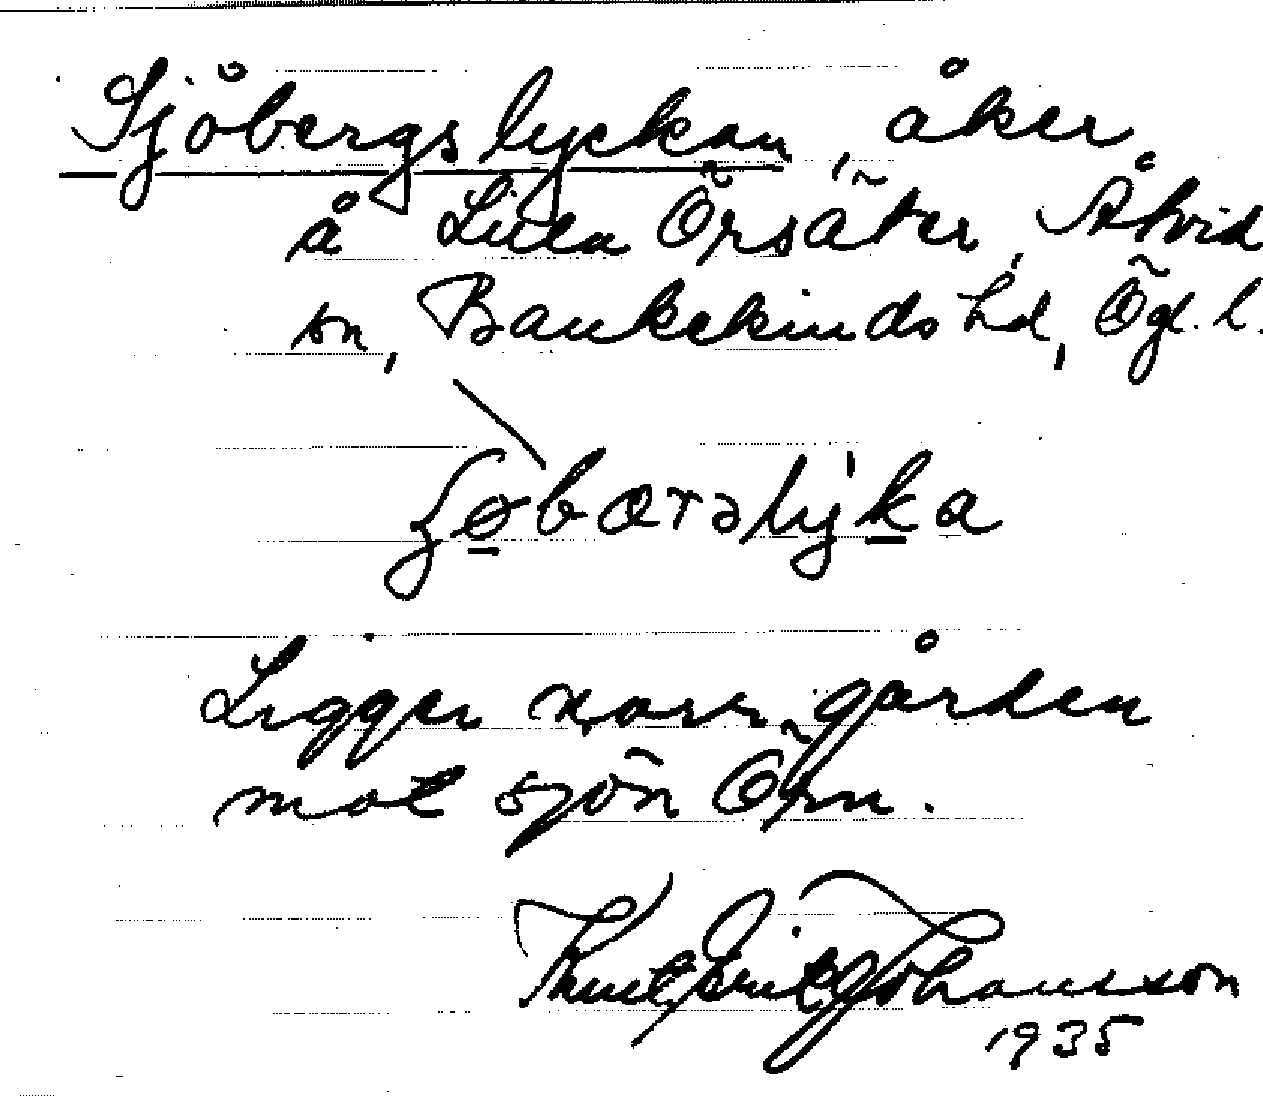 Sjöbergslyckan, åker
å Lilla Örsäter, Åtvid
sn, Bankekinds hd, Ögl. l.
Ligger norr gården
mot sjön Örn.
Knut Erik Johansson
1935